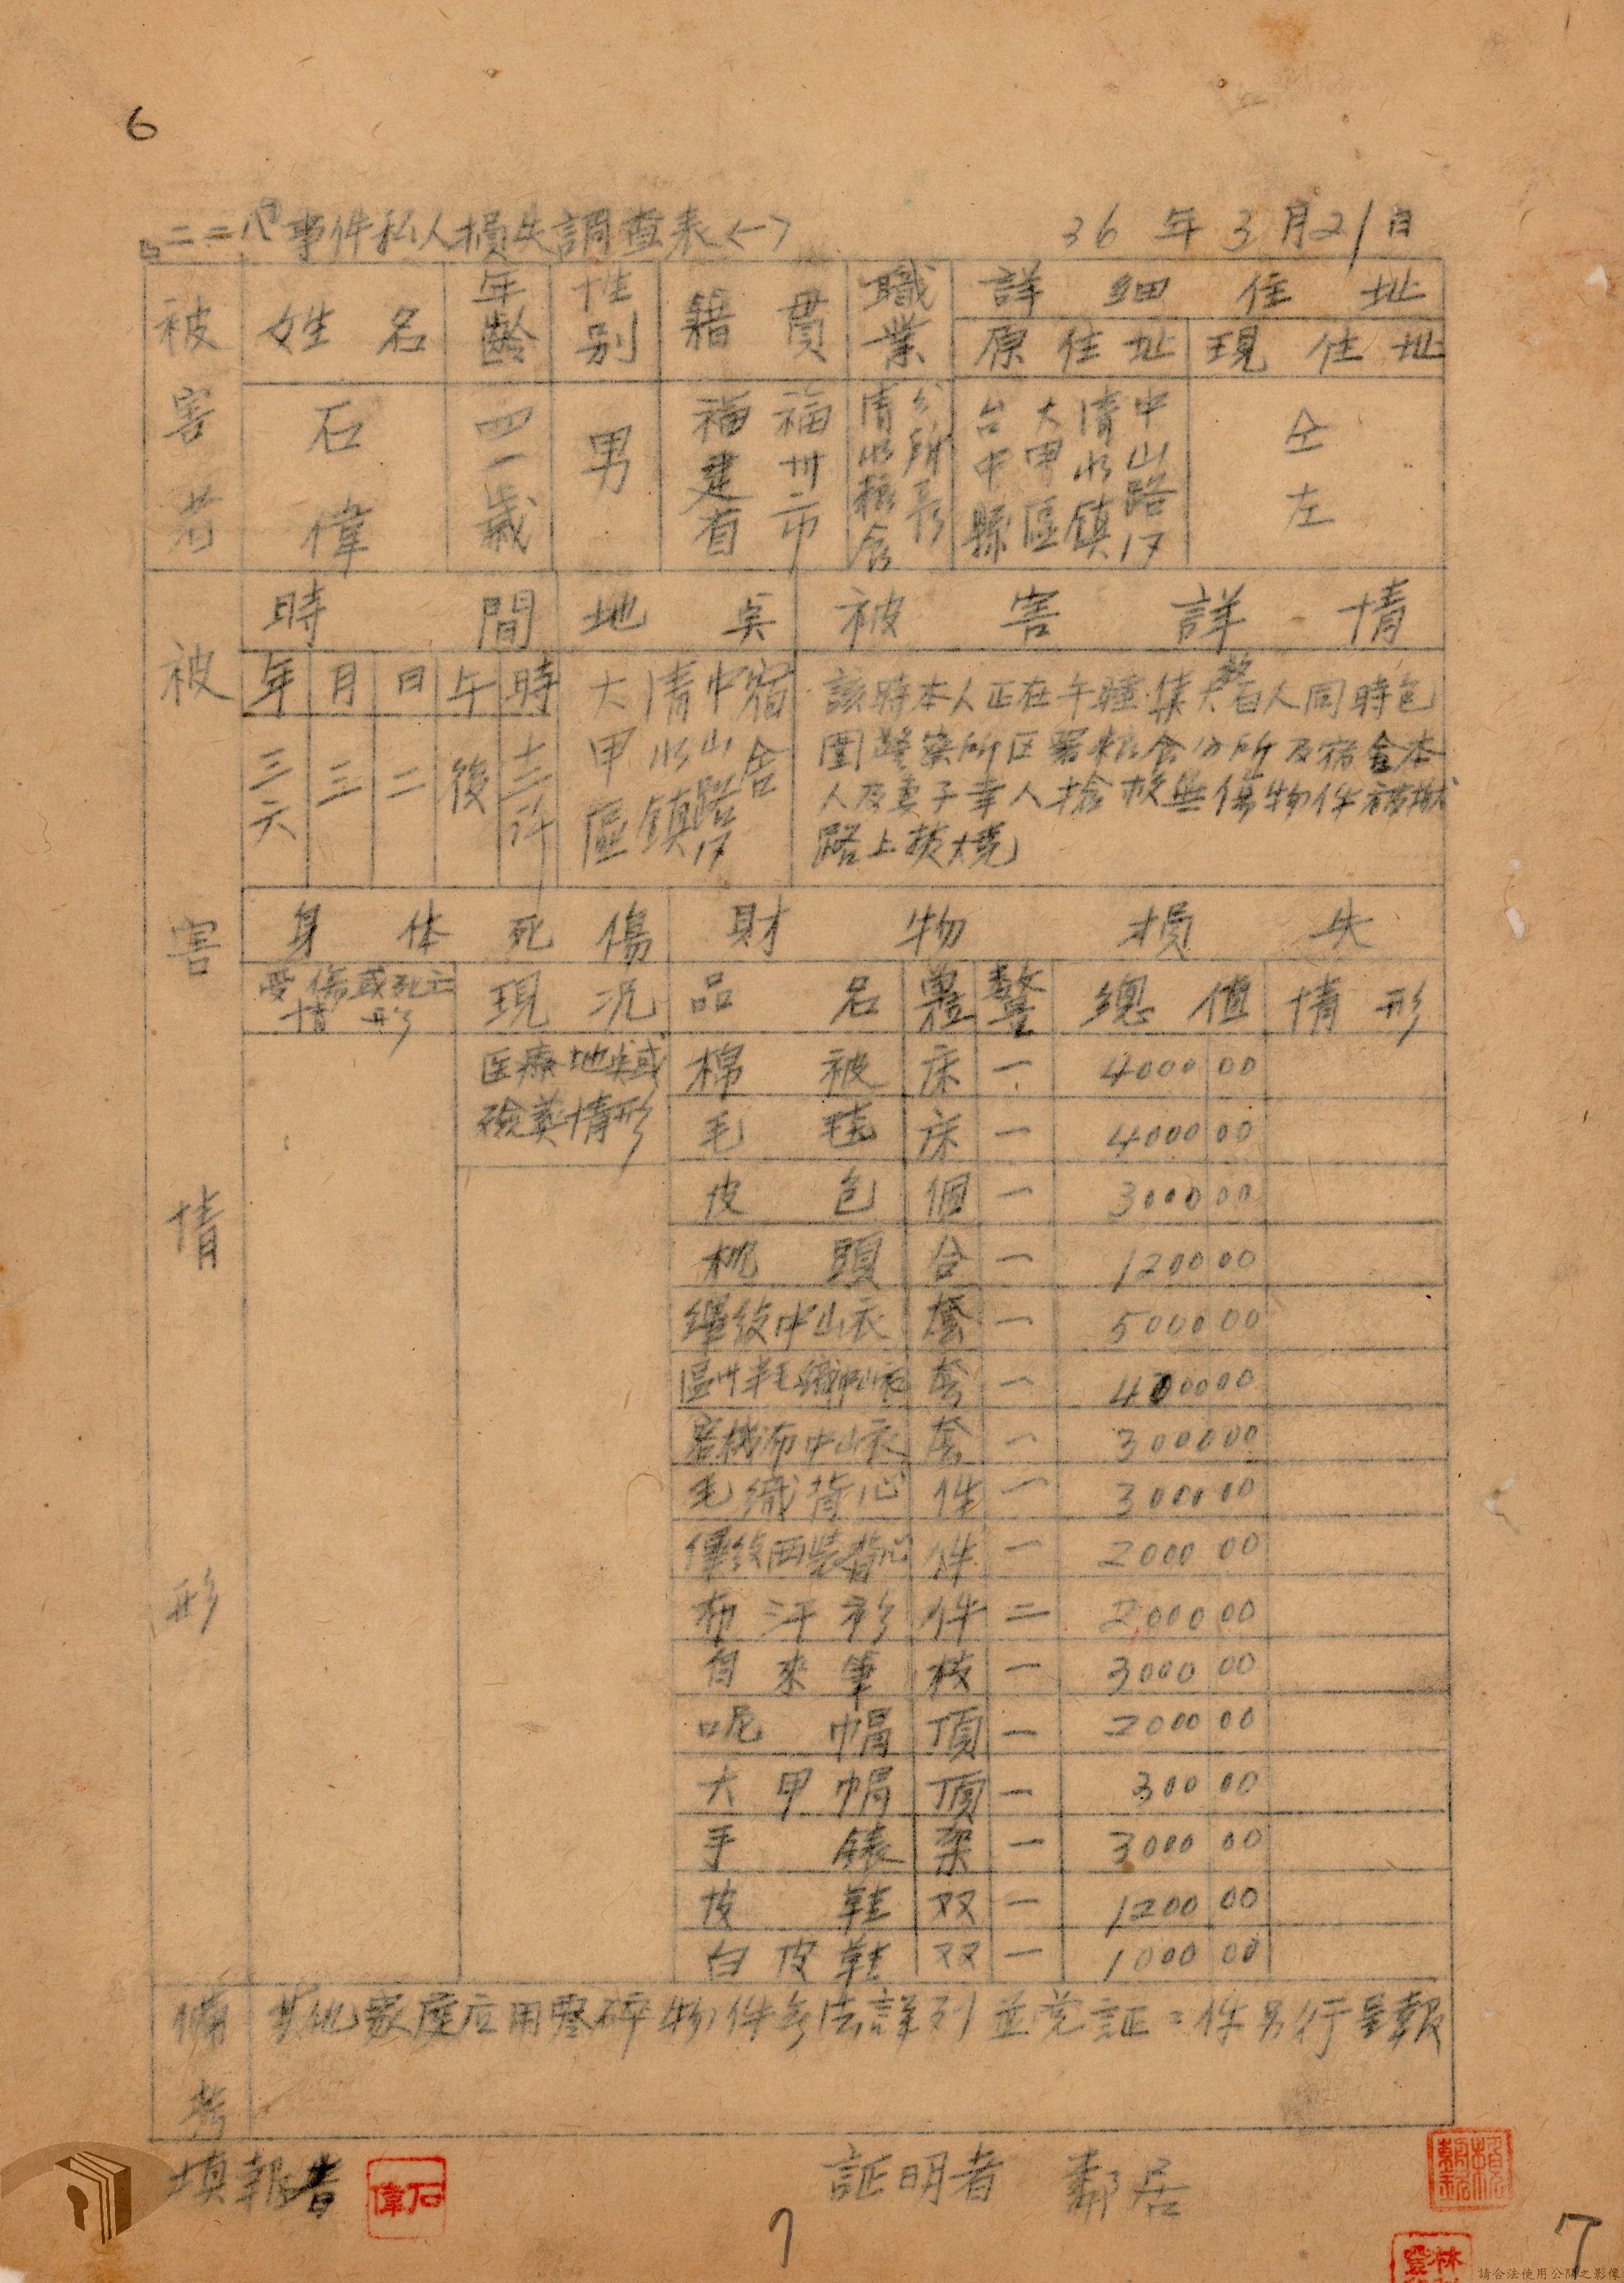 6
『二二八』事件私人損失調查表<一>
36年3月21日
被害者
姓名
年齡
性別
籍貫
職業
詳細住址
原住址
現住址
石偉
四一歲
男
福建省
福州市
清水粮食
分所長
台中縣
大甲區
清水鎮
中山路17
仝左
被害情形
時間
地点
被害詳情
年
月
日
午
時
三六
三
二
後
十二許
大甲區
清水鎮
中山路17
宿舍
該時本人正在午睡集大眾百人同時包
圍警察所区署粮食分所及宿舍本
人及妻子幸人搶救無傷物件被搬
路上焚燒
身体死傷
財物損失
受傷或死亡
情形
現况
品名
單位
數量
總值
情形
医療地点或
殮葬情形
棉被 床 一 4000 00
毛毯 床 一 4000 00
皮包 個 一 3000 00
枕頭 合 一 1200 00
中山衣 套 一 5000 00
羊毛 套 一 4000 00
布中山衣 套 一 3000 00
毛織背心 件 一 3000 00
西裝背心 件 一 2000 00
布汗衫 件 二 2000 00
自來筆 枝 一 3000 00
呢帽 頂 一 2000 00
大甲帽 頂 一 300 00
手錶 架 一 3000 00
皮鞋 双 一 1200 00
白皮鞋 双 一 1000 00
備考
其他家庭应用零碎物件無法詳列並党証二件另行呈報
填報者
石偉
証明者 鄰居
7
7
請合法使用公開之影像